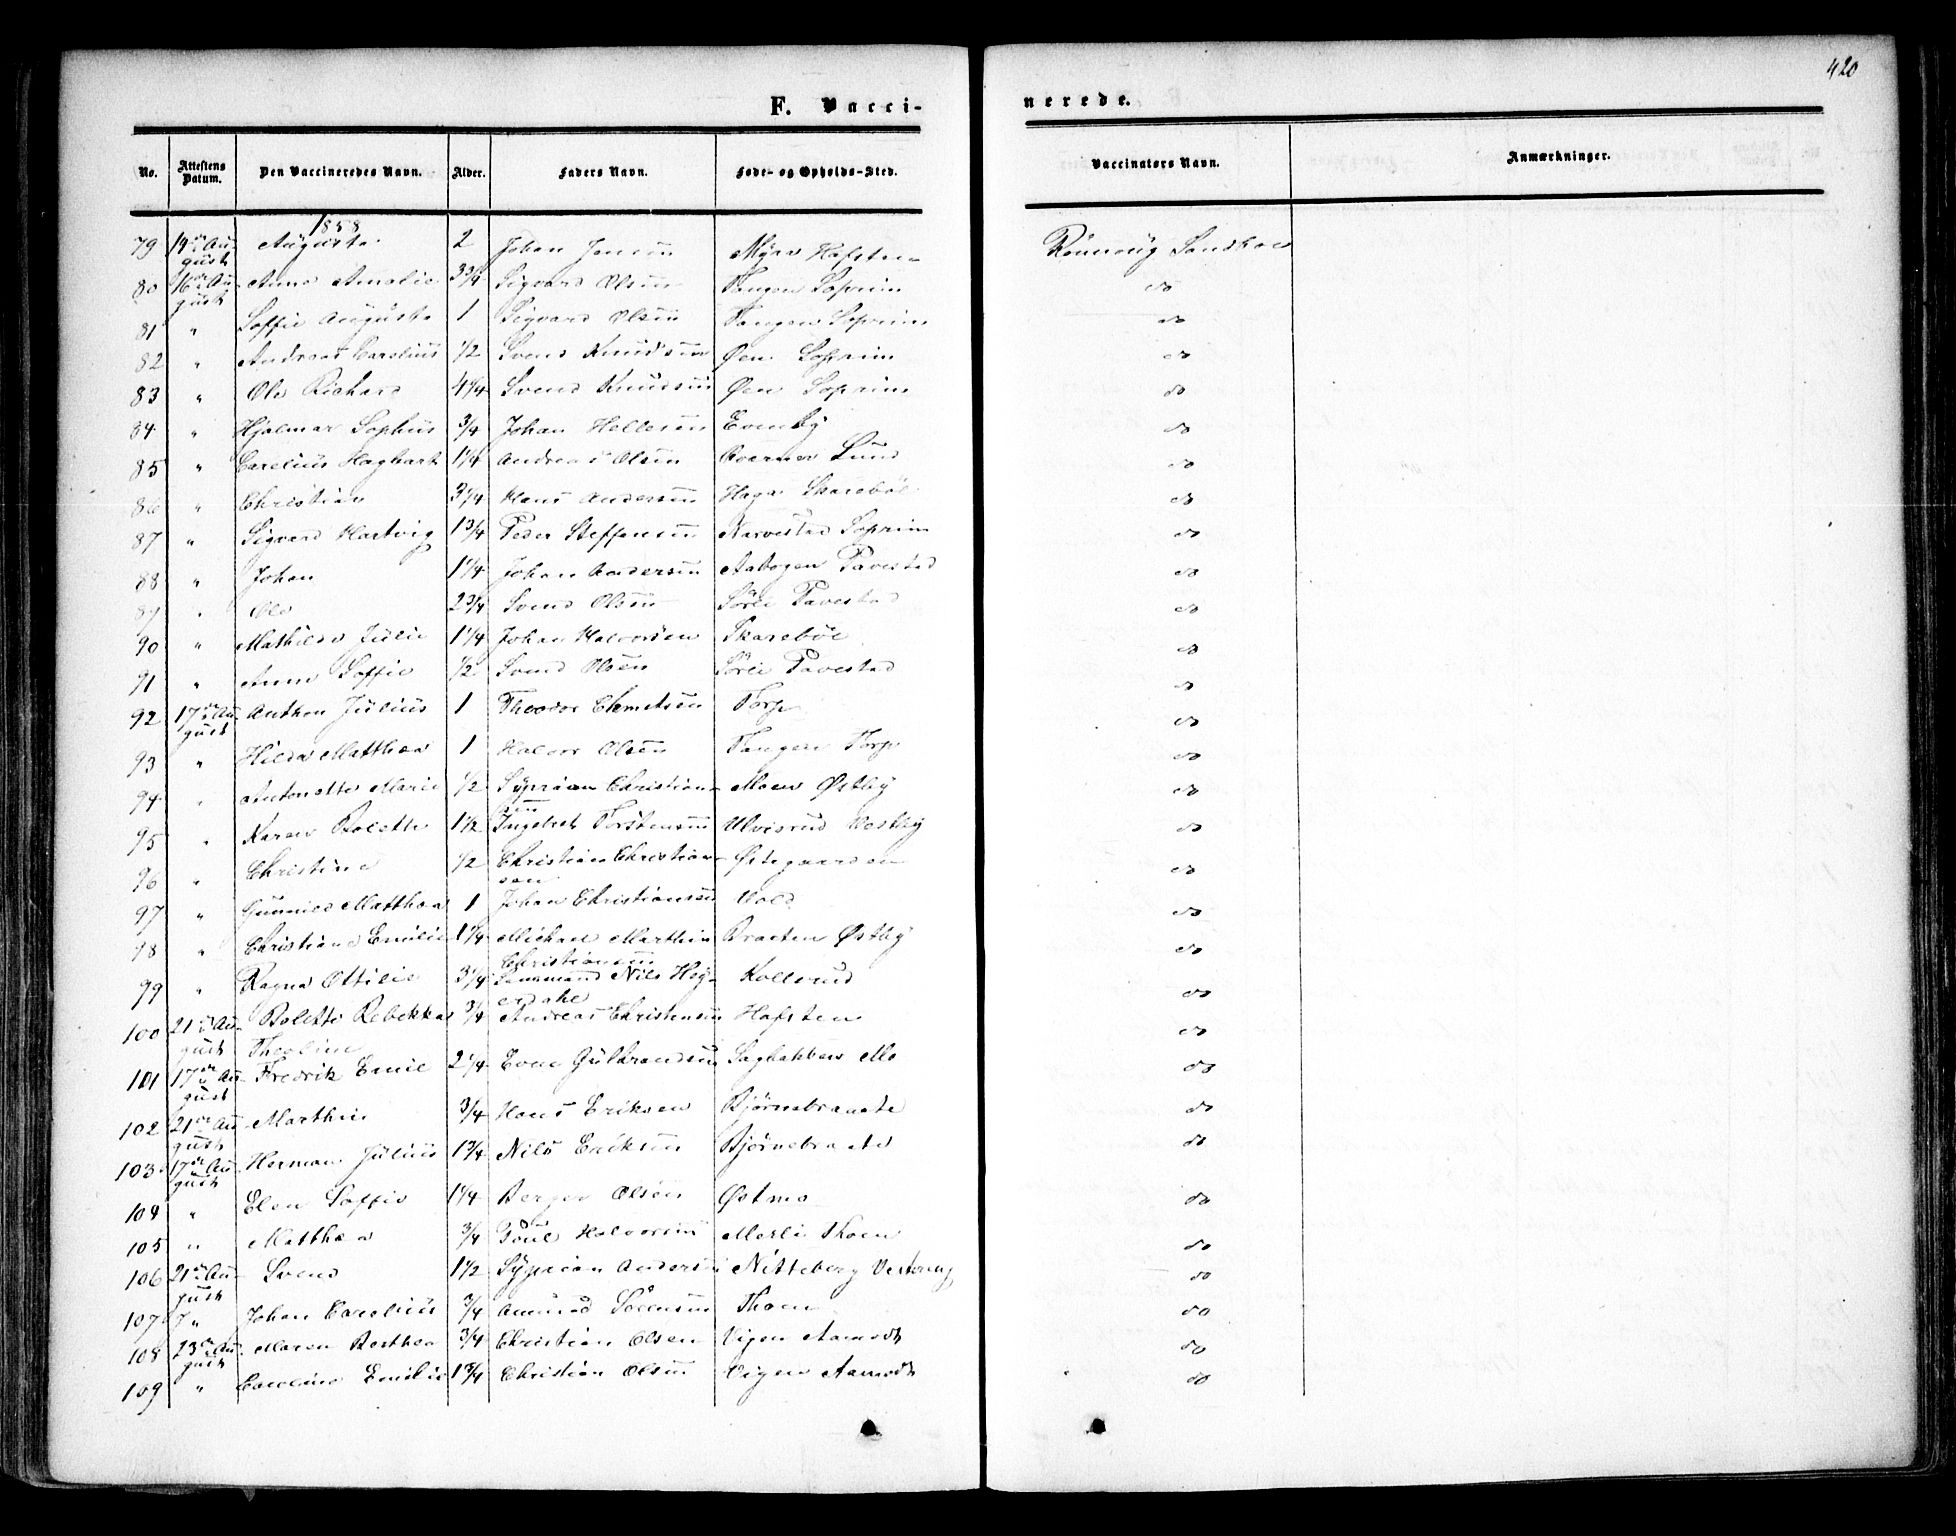 420
F. Vacci-
nerede.
No. Attestens Datum. Den Vaccineredes Navn. Alder. Faders Navn. Føde- og Opholds-Sted. Vaccinators Navn. Anmærkninger.
1858
79 14de August Auguste 2 Johan Jensen Myra Hafsten Rönnoug Sandholt
80 16de August Anne Amalie 3 3/4 Sigvard Olsen Tangen Soprim do
81 " Soffie Auguste 1 Sigvard Olsen Tangen Soprim do
82 " Andreas Carelius 1/2 Svend Knudsen Øen Soprim do
83 " Ole Richard 4 1/4 Svend Knudsen Øen Soprim do
84 " Hjalmar Sophus 3/4 Johan Hellesen Evenby do
85 " Carelius Hagbart 1 1/4 Andreas Olsen Lund do
86 " Christian 3 1/4 Hans Andersen Haga Skarebøl do
87 " Sigvard Hartvig 1 3/4 Peder Steffensen Narvestad Soprim do
88 " Johan 1 1/4 Johan Andersen Aabogen Tavestad do
89 " Ole 2 3/4 Svend Olsen Söree Tavestad do
90 " Mathilde Julie 1 1/4 Johan Halvorsen Skarebøl do
91 " Anne Soffie 1/2 Svend Olsen Söree Tavestad do
92 17de August Anthon Julius 1 Theodor Clemetsen Torp do
93 " Hilda Matthea 1 Halvor Olsen Tangen Torp do
94 " Antonette Marie 1/2 Syprian Christiansen Moen Østby do
95 " Karen Bolette 1 1/2 Ingebret Torstensen Ulvisrud Vestby do
96 " Christine 1/2 Christian Christiansen Østegaarden do
97 " Gunnild Matthea 1 Johan Christiansen Vold do
98 " Christiane Emilie 1 1/4 Mickael Marthin Christiansen Braaten Østby do
99 " Ragna Ottilie 3 1/4 Lensmand Nils Heyerdahl Kollerud do
100 21de August Bolette Rebekka Theoline 3/4 Andreas Christensen Hafsten do
101 17de August Fredrik Emil 2 1/4 Even Gulbrandsen Sagbakken Mo do
102 21de August Marthin 3/4 Hans Eriksen Bjørnebraate do
103 17de August Herman Julius 1 3/4 Nils Eriksen Bjørnebraate do
104 " Elen Soffie 1 1/4 Berger Olsen Østmo do
105 " Matthea 3/4 Poul Halvorsen Mosli Thoen do
106 21de August Svend 1 1/2 Syprian Andersen Nitteberg Vesteng do
107 " Johan Carelius 3/4 Amund Sörensen Thoen do
108 23de August Maren Berthea 3/4 Christian Olsen Vigen Aamodt do
109 " Caroline Emilie 1 3/4 Christian Olsen Vigen Aamodt do